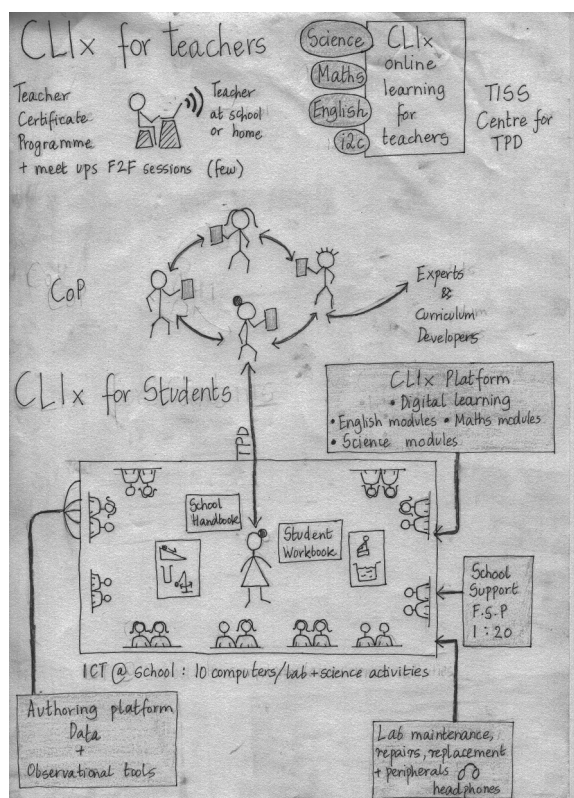 CLIx for teachers
Teacher
Certificate
Programme
+ meet ups F2F sessions (few)
Teacher
at school
or home
Science
Maths
English
i2c
CLIx
online
learning
for
teachers
TISS
Centre for
TPD
CoP
Experts
&
Curriculum
Developers
CLIx for Students
TPD
CLIx Platform
• Digital learning
• English modules • Maths modules
• Science modules
School
Handbook
Student
Workbook
School
Support
F.S.P
1 : 20
ICT @ school : 10 computers/lab + science activities
Authoring platform
Data
+
Observational tools
Lab maintenance,
repairs, replacement
+ peripherals
headphones